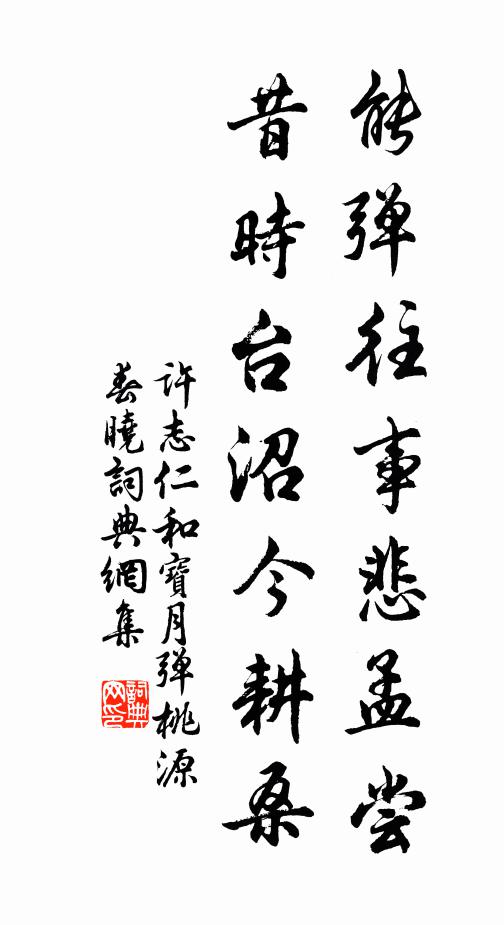 能弹往事悲孟尝
昔時台沼今耕桑
许志仁和寶月弹桃源
春曉詞典網集
詞典网印